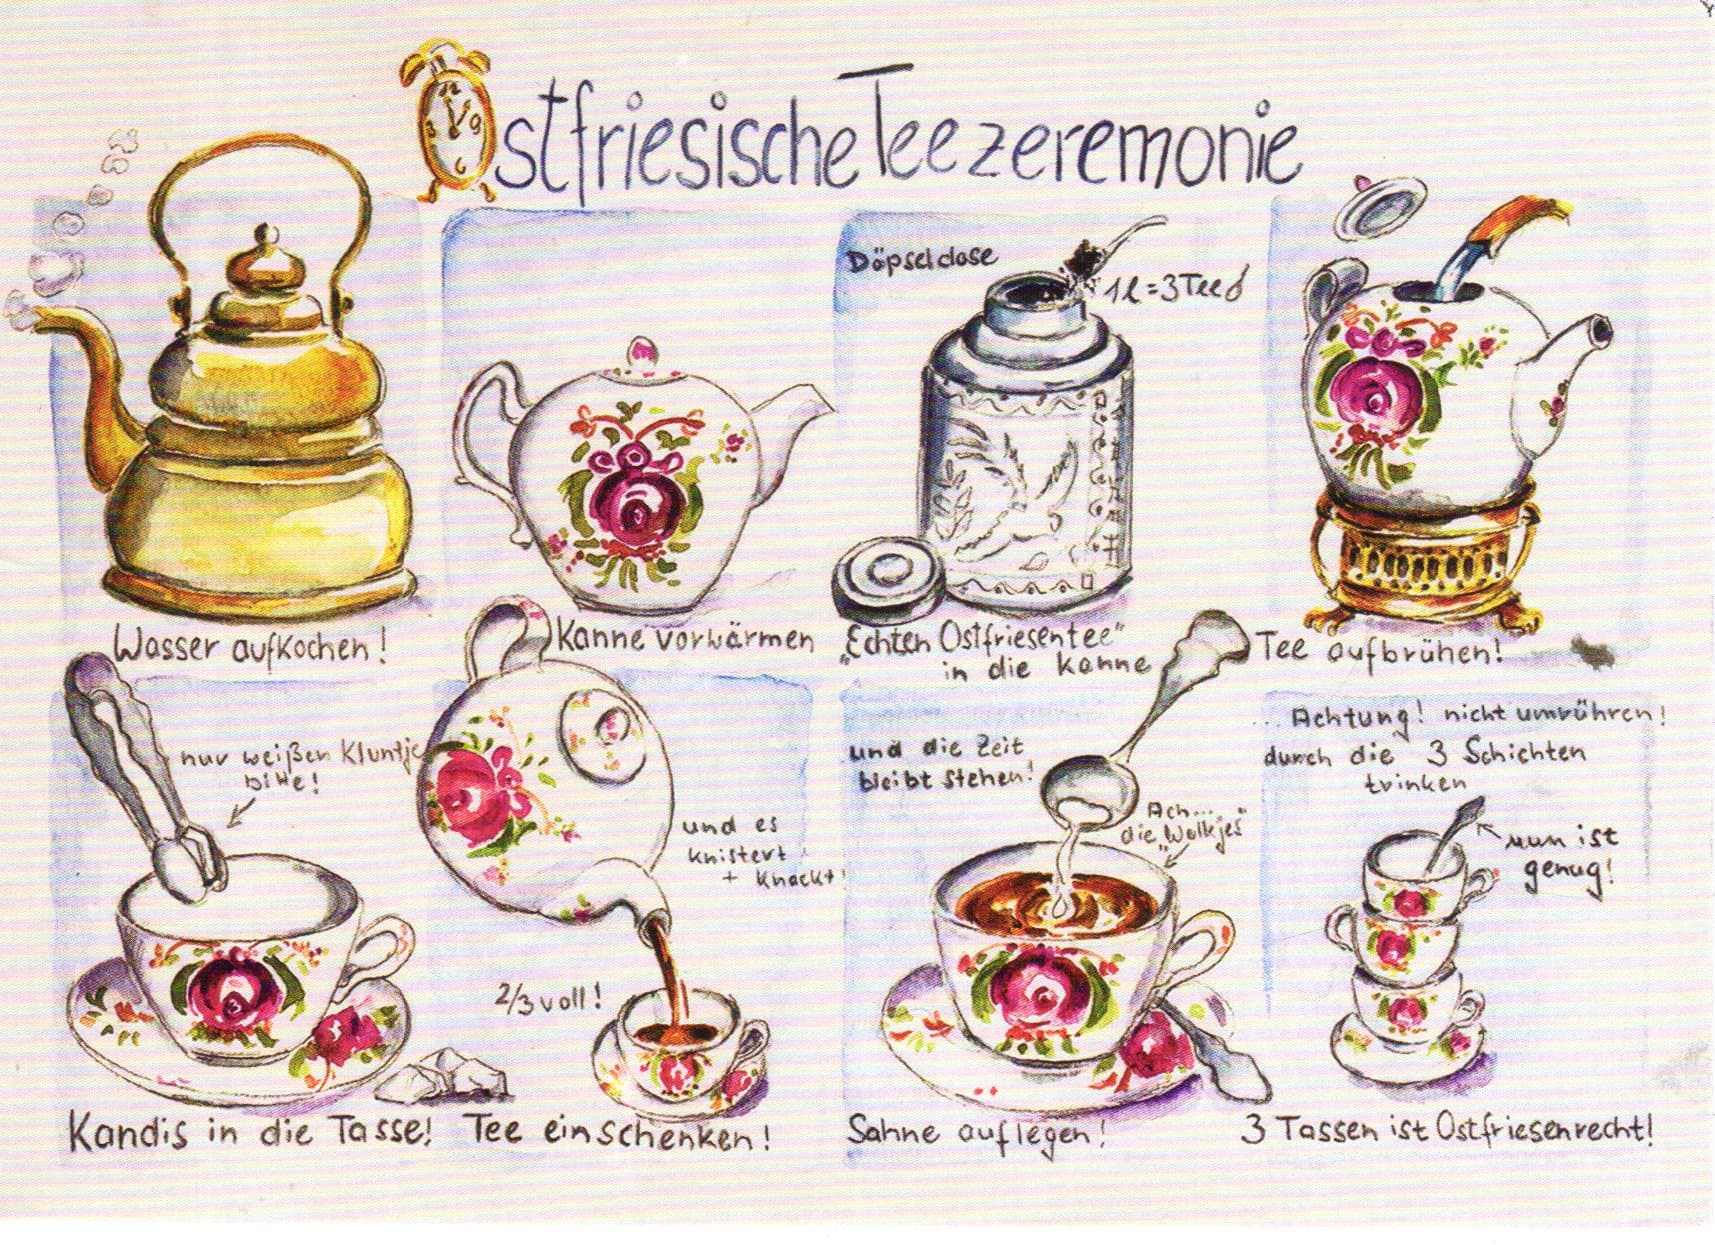 Ostfriesische Teezeremonie
Wasser aufkochen!
Kanne vorwärmen
Döpseldose
1l=3Tee
"Echten Ostfriesentee"
in die Kanne
Tee aufbrühen!
nur weißen Kluntje
bitte!
Kandis in die Tasse!
und es
knistert
+ knackt!
2/3 voll!
Tee einschenken!
und die Zeit
bleibt stehen!
Ach...
die "Wolkjes"
Sahne auflegen!
... Achtung! nicht umrühren!
durch die 3 Schichten
trinken
nun ist
genug!
3 Tassen ist Ostfriesenrecht!